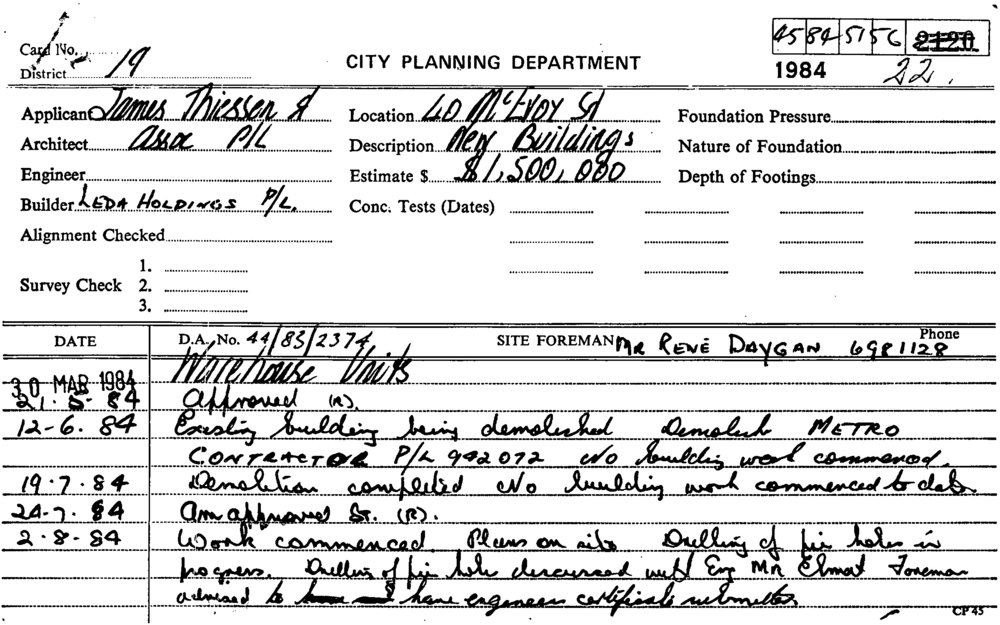 Card No.
District 19
CITY PLANNING DEPARTMENT
45 84 5156 2120
1984 22.
Applicant James Thiessen &
Location 40 McEvoy St
Foundation Pressure
Architect Assoc P/L
Description New Buildings
Nature of Foundation
Engineer
Estimate $ $1,500,000
Depth of Footings
Builder LEDA HOLDINGS P/L.
Conc. Tests (Dates)
Alignment Checked
1.
Survey Check 2.
3.
DATE
D.A. No. 44/83/2374
SITE FOREMAN MR RENÉ DAYGAN Phone 6981128
Warehouse Units
30 MAR 1984
21-5-84 Approved (R).
12-6.84 Existing building being demolished Demolish METRO
CONTRACTOR P/L 942072 No building work commenced.
19.7.84 Demolition completed No building work commenced to date.
24-7.84 Am approved St. (R).
2-8-84 Work commenced. Plans on site Drilling of pier holes in
progress. Drilling of pier hole discussed with Eng Mr Foreman
advised to have engineers certificate submitted
CP 45